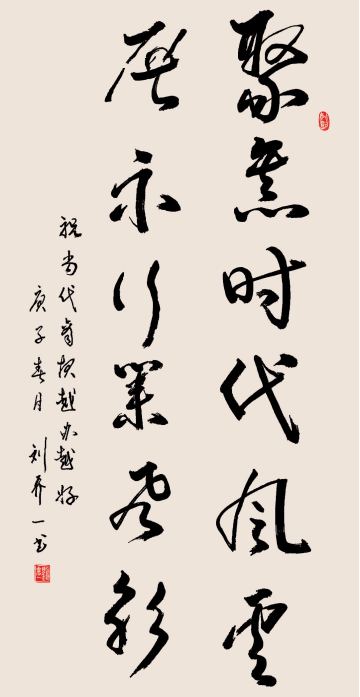 聚焦时代风云
展示行业风彩
祝当代音视越办越好
庚子春月 刘乔一书